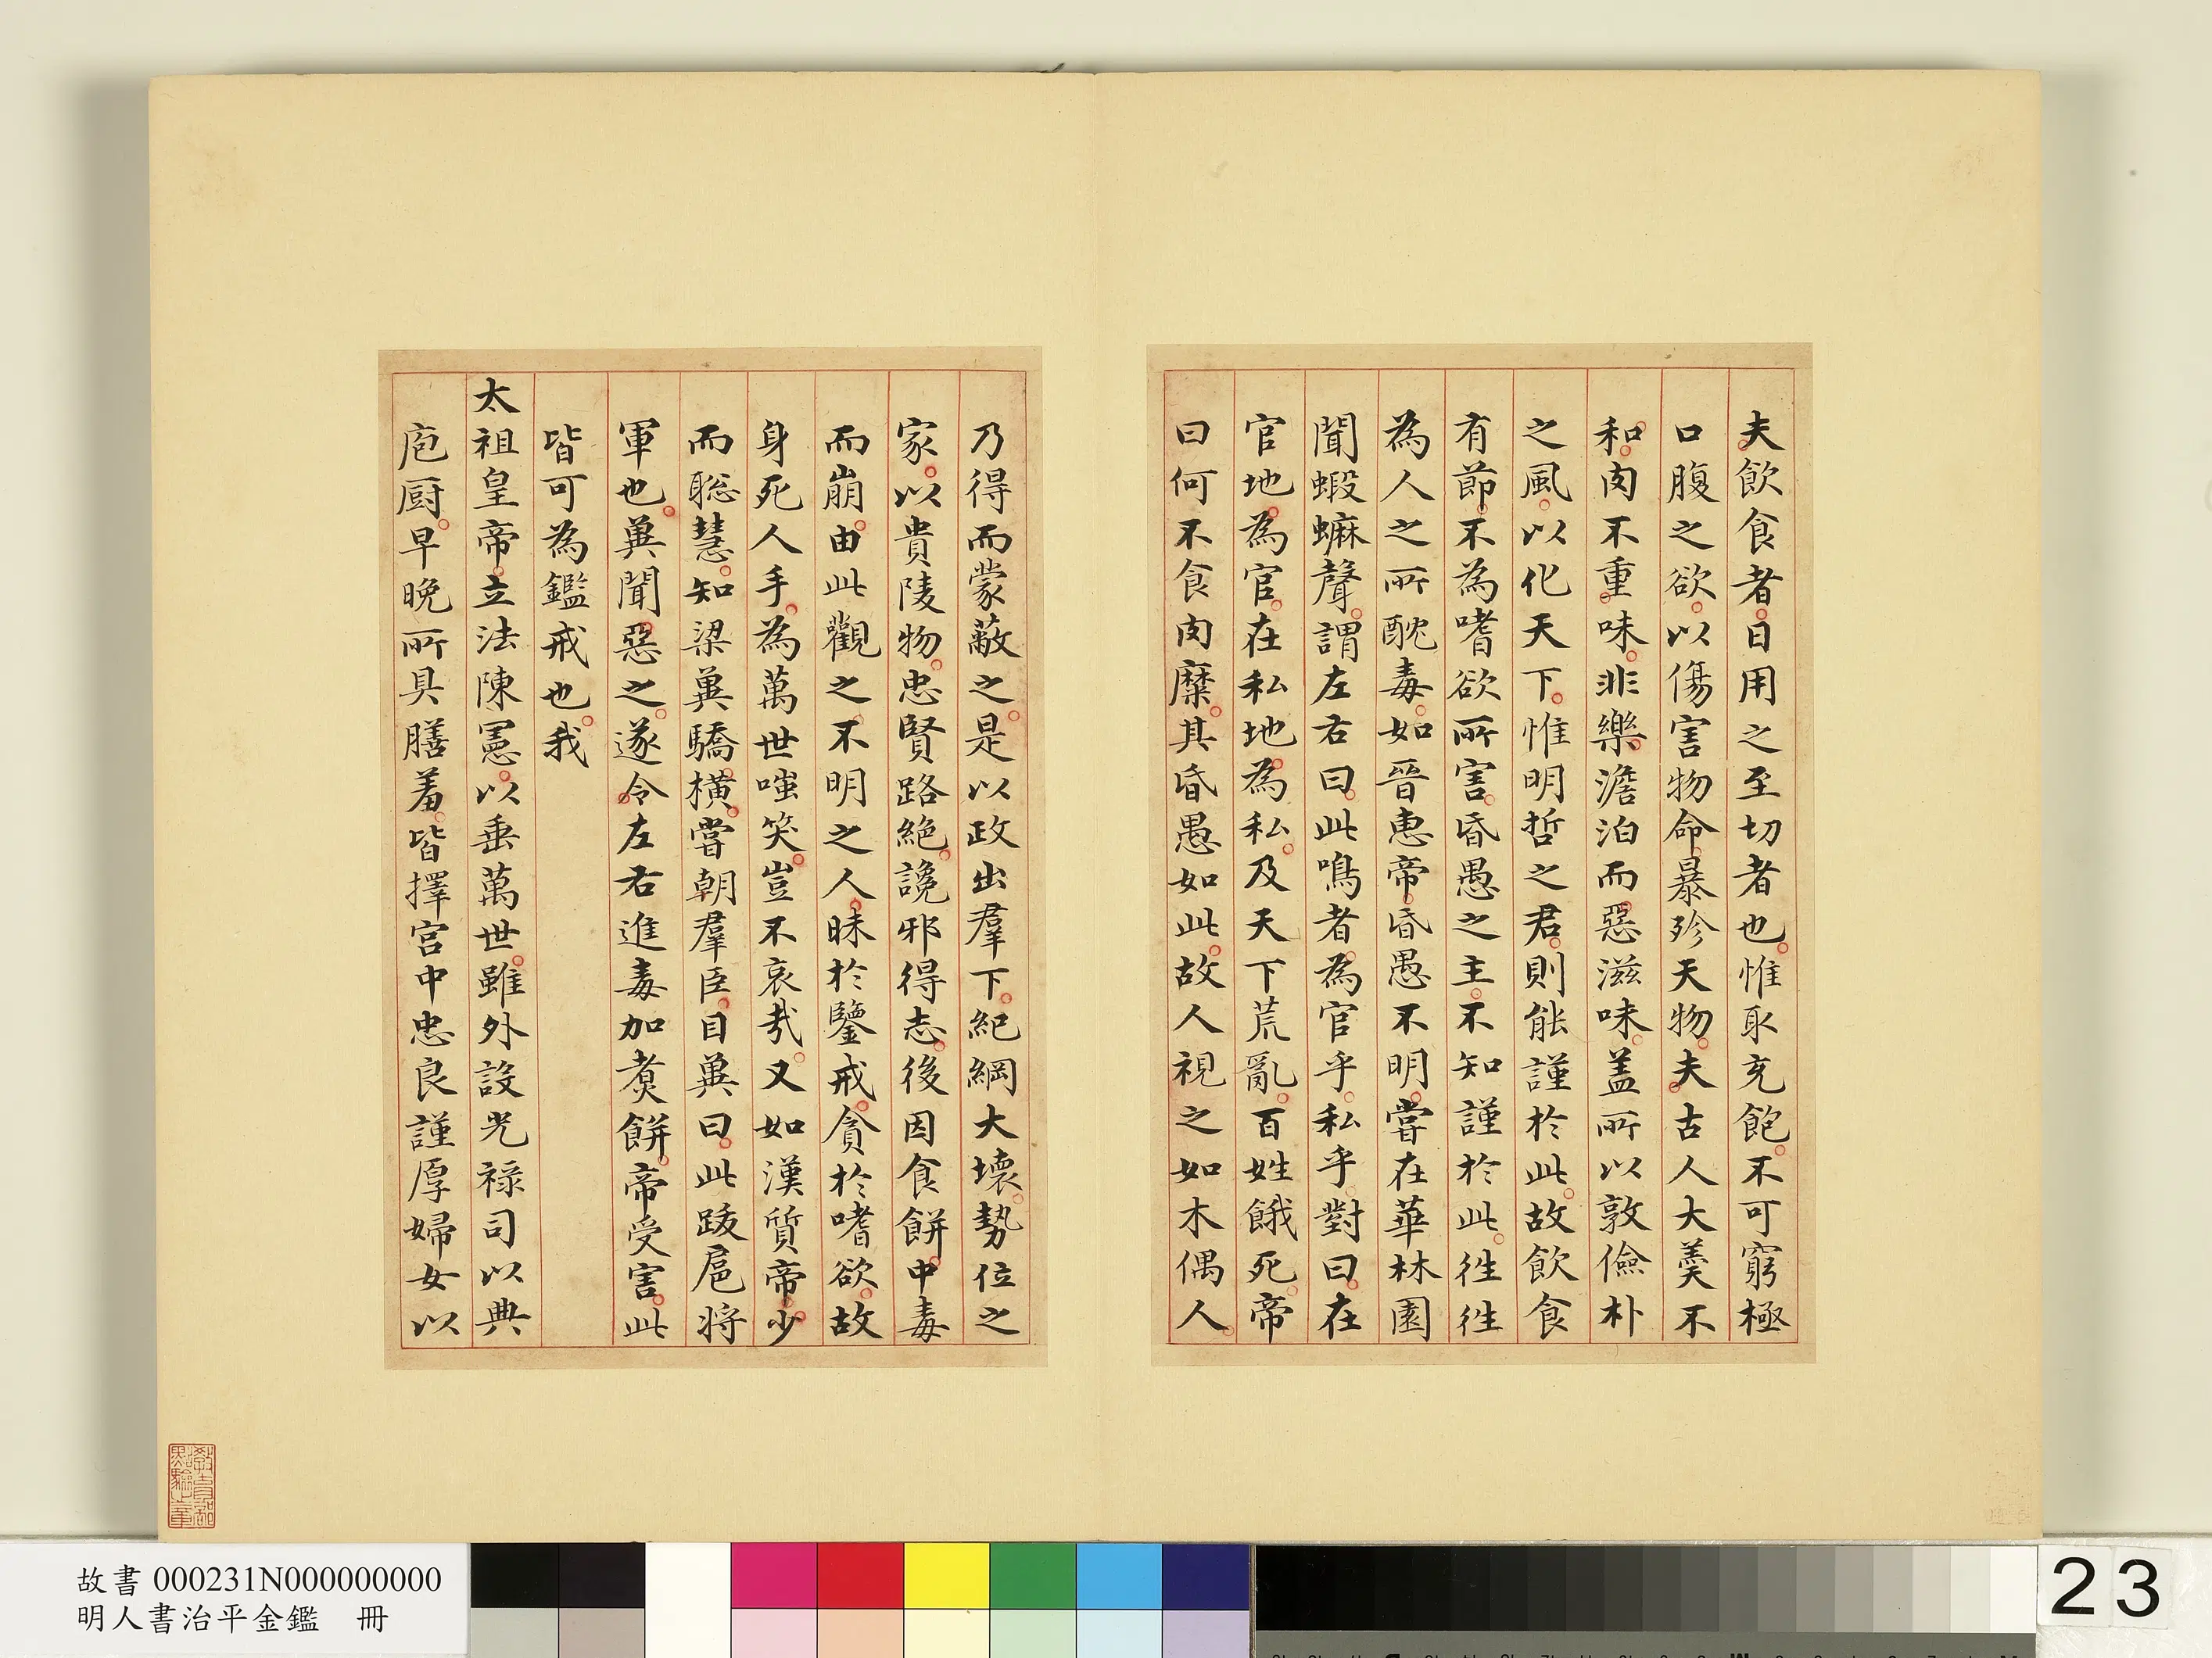 夫飲食者日用之至切者也惟取充飽不可窮極
口腹之欲以傷害物命暴殄天物夫古人大羹不
和肉不重味非樂澹泊而惡滋味盖所以敦儉朴
之風以化天下惟明哲之君則能謹於此故飲食
有節不為嗜欲所害昏愚之主不知謹於此徃徃
為人之所酖毒如晉惠帝昏愚不明嘗在華林園
聞蝦蟆聲謂左右曰此鳴者為官乎私乎對曰在
官地為官在私地為私及天下荒亂百姓餓死帝
曰何不食肉糜其昏愚如此故人視之如木偶人
乃得而蒙蔽之是以政出羣下紀綱大壞勢位之
家以貴陵物忠賢路絕讒邪得志後因食餅中毒
而崩由此觀之不明之人昧於鑒戒貪於嗜欲故
身死人手為萬世嗤笑豈不哀哉又如漢質帝少
而聡慧知梁冀驕橫嘗朝羣臣目冀曰此跋扈将
軍也冀聞惡之遂令左右進毒加煑餅帝受害此
皆可為鑑戒也我
太祖皇帝立法陳憲以垂萬世雖外設光禄司以典
庖厨早晚所具膳羞皆擇宫中忠良謹厚婦女以
故書 000231N000000000
明人書治平金鑑 冊
23